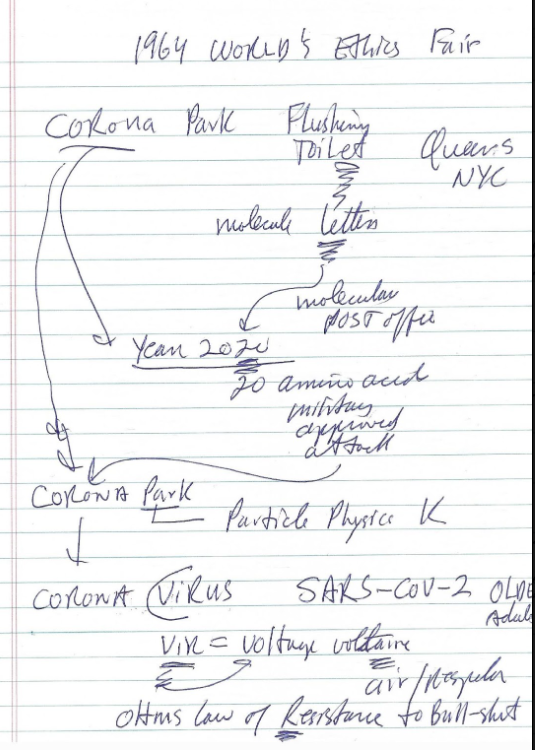 1964 WORLD'S Ethics Fair
CORONA Park Flushing
Toilet Queens
NYC
molecule letters
molecular
POST office
Year 2020
20 amino acid
military
approved
attack
CORONA Park
Particle Physics K
CORONA ViRUS SARS-CoV-2 OLDE
Adul
ViR = Voltage voltaire
air/
OHms law of Resistance to Bull-shit